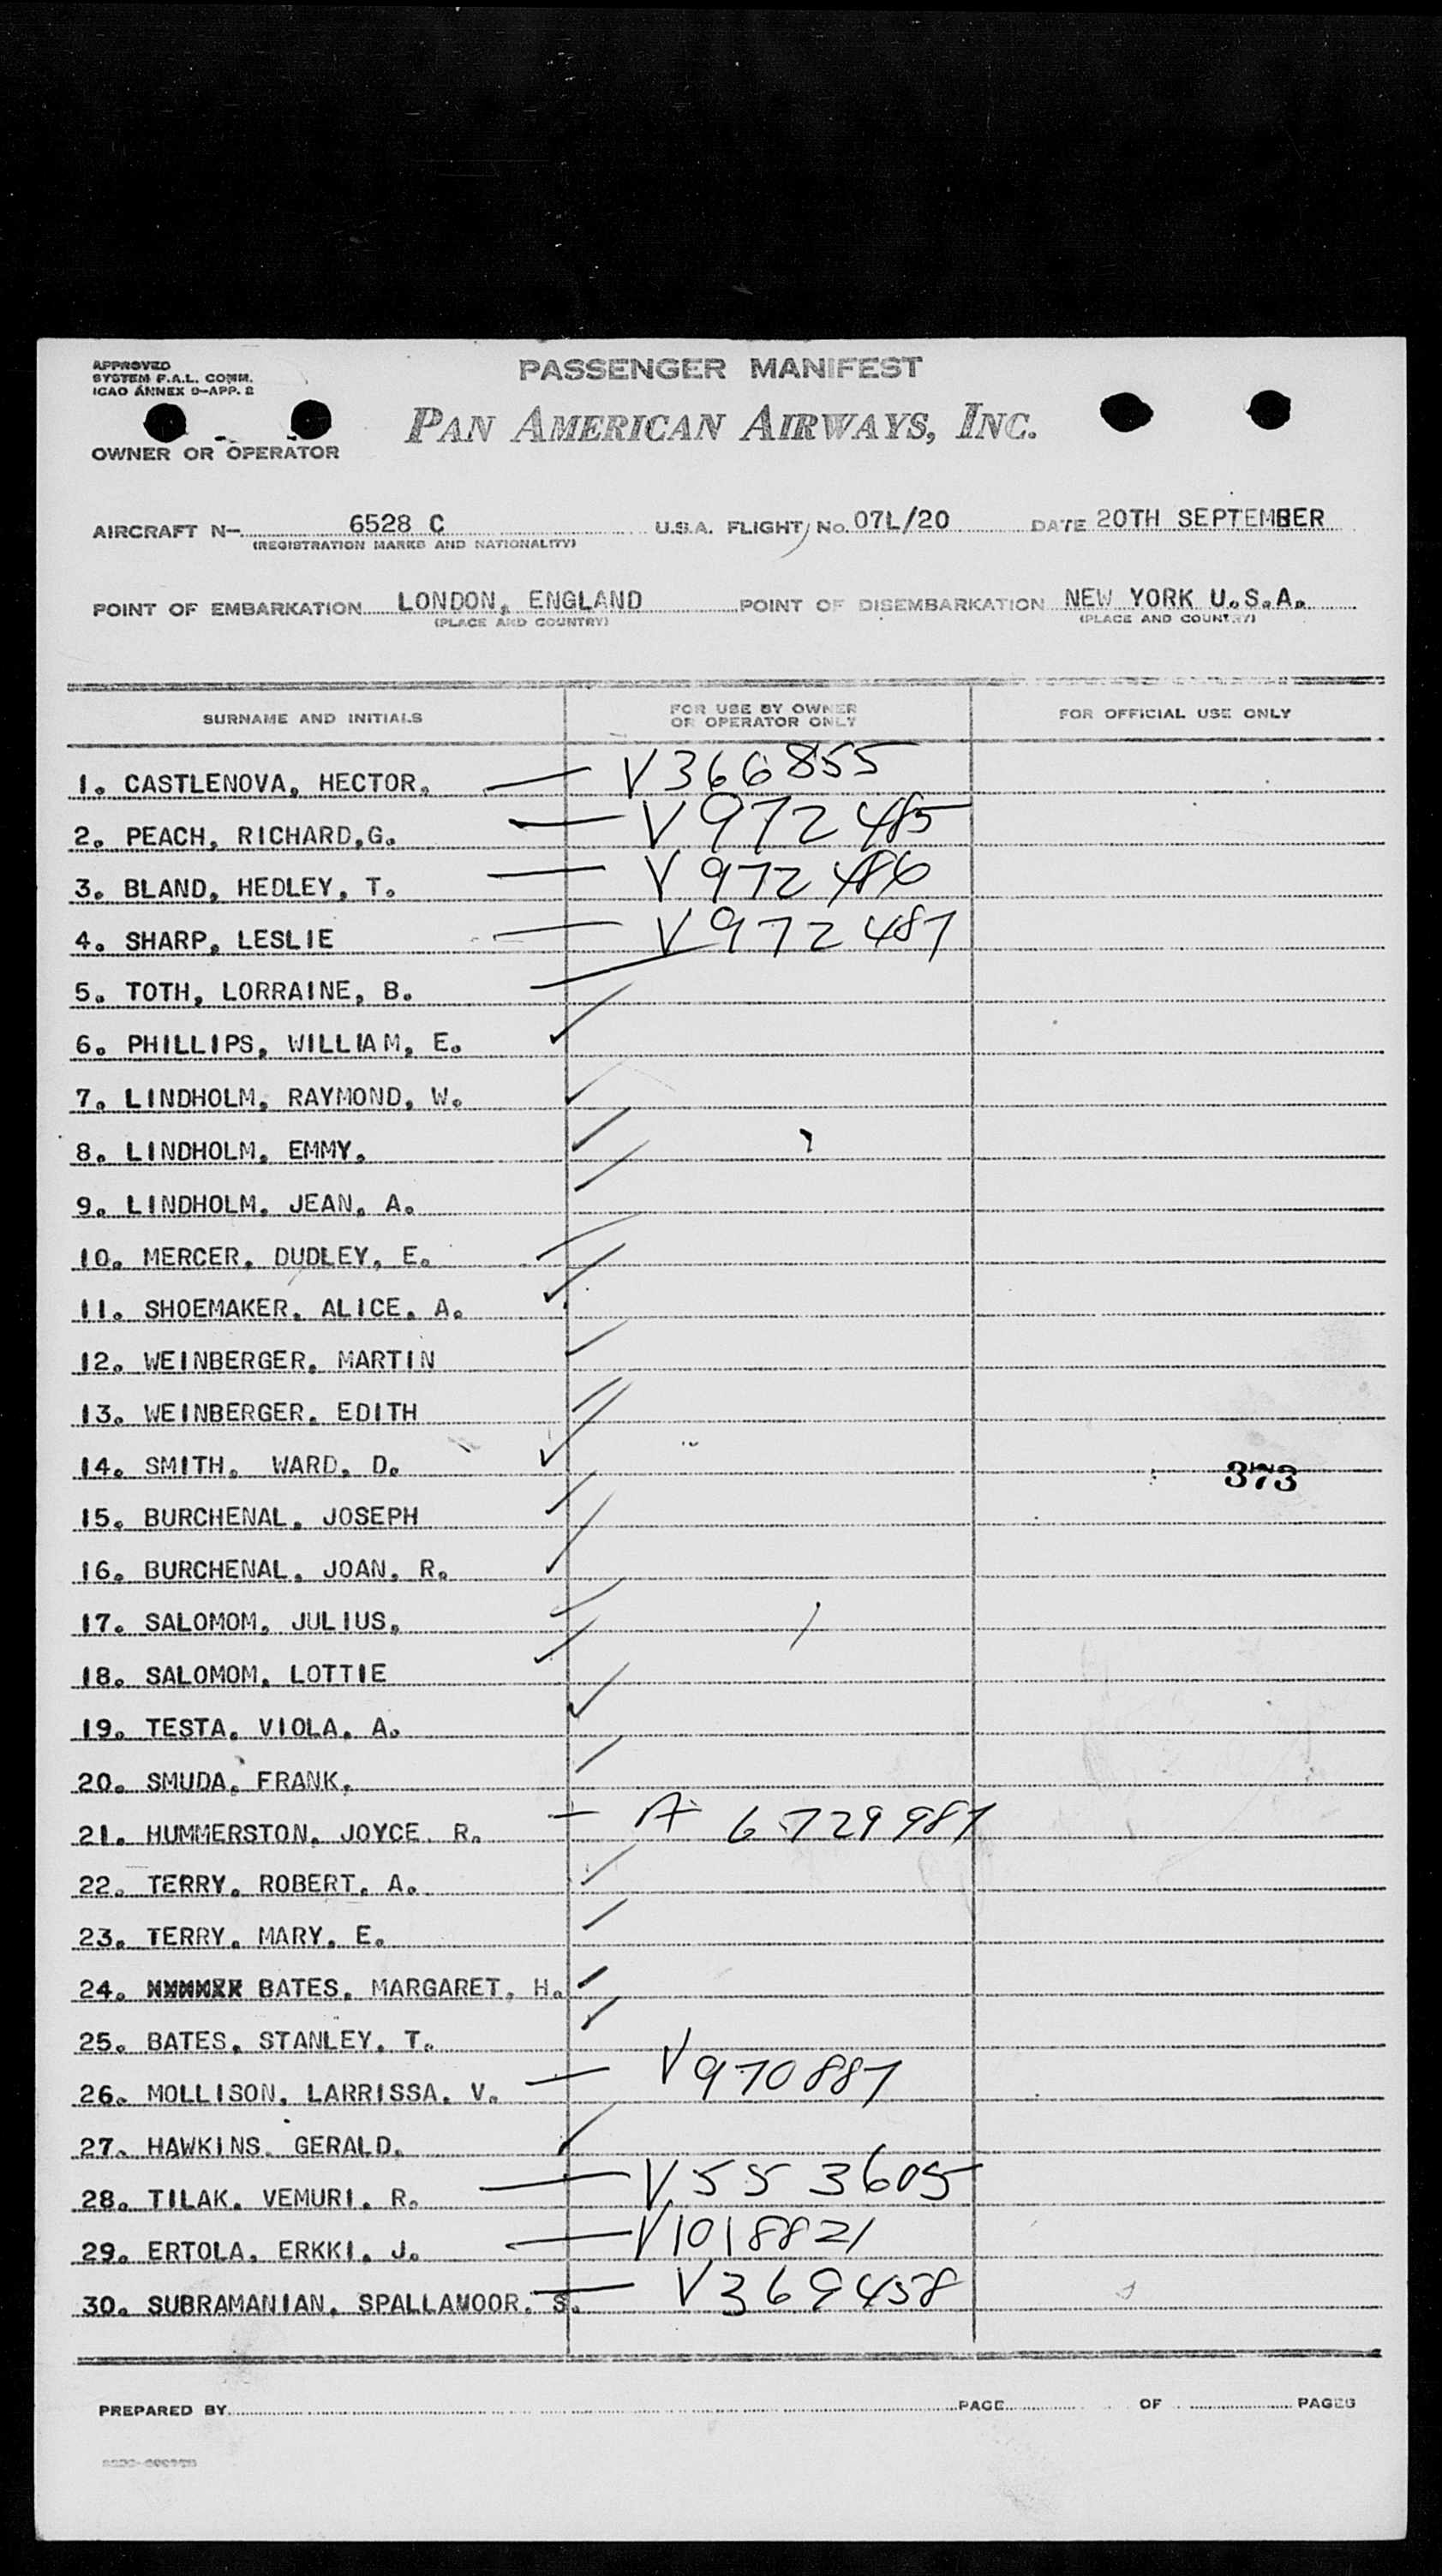 APPROVED
SYSTEM F.A.L. COMM.
ICAO ANNEX 9-APP. 2
PASSENGER MANIFEST
PAN AMERICAN AIRWAYS, INC.
OWNER OR OPERATOR
AIRCRAFT N- 6528 C U.S.A. FLIGHT/ NO. 07L/20 DATE 20TH SEPTEMBER
(REGISTRATION MARKS AND NATIONALITY)
POINT OF EMBARKATION LONDON, ENGLAND POINT OF DISEMBARKATION NEW YORK U.S.A.
(PLACE AND COUNTRY) (PLACE AND COUNTRY)
SURNAME AND INITIALS FOR USE BY OWNER OR OPERATOR ONLY FOR OFFICIAL USE ONLY
1. CASTLENOVA, HECTOR. — V366855
2. PEACH, RICHARD,G. — V972485
3. BLAND, HEDLEY, T. — V972486
4. SHARP, LESLIE — V972487
5. TOTH, LORRAINE, B. —
6. PHILLIPS, WILLIAM, E. ✓
7. LINDHOLM, RAYMOND, W. ✓
8. LINDHOLM, EMMY. ✓
9. LINDHOLM, JEAN, A. ✓
10. MERCER, DUDLEY, E. ✓
11. SHOEMAKER, ALICE, A. ✓
12. WEINBERGER, MARTIN ✓
13. WEINBERGER, EDITH ✓
14. SMITH, WARD, D. ✓ 373
15. BURCHENAL, JOSEPH ✓
16. BURCHENAL, JOAN, R. ✓
17. SALOMOM, JULIUS, ✓
18. SALOMOM, LOTTIE ✓
19. TESTA, VIOLA, A. ✓
20. SMUDA, FRANK, ✓
21. HUMMERSTON, JOYCE. R. — A 6729987
22. TERRY, ROBERT, A. ✓
23. TERRY, MARY, E. ✓
24. BATES, MARGARET, H. ✓
25. BATES, STANLEY, T. ✓
26. MOLLISON, LARRISSA, V. — V970887
27. HAWKINS, GERALD, ✓
28. TILAK, VEMURI, R. — V553605
29. ERTOLA, ERKKI, J. — V1018821
30. SUBRAMANIAN, SPALLAMOOR, S. — V369458
PREPARED BY PAGE OF PAGES